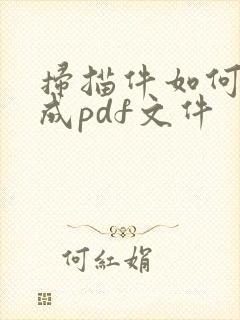 掃描件如何
成pdf文件
何紅娟